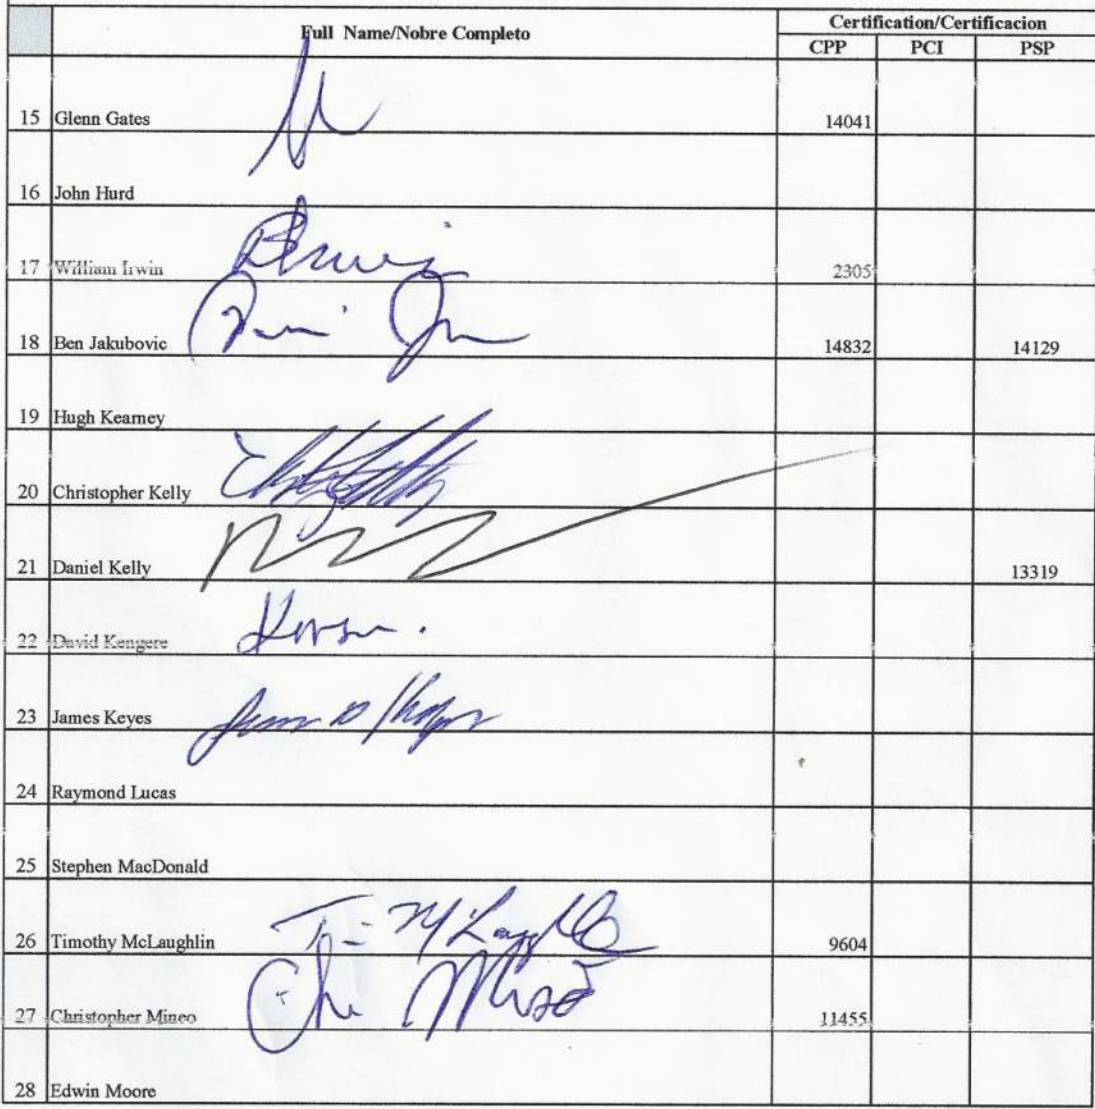 Full Name/Nobre Completo Certification/Certificacion
CPP PCI PSP
15 Glenn Gates 14041
16 John Hurd
17 William Irwin 2305
18 Ben Jakubovic 14832 14129
19 Hugh Kearney
20 Christopher Kelly
21 Daniel Kelly 13319
22 David Kengere
23 James Keyes
24 Raymond Lucas
25 Stephen MacDonald
26 Timothy McLaughlin 9604
27 Christopher Mineo 11455
28 Edwin Moore